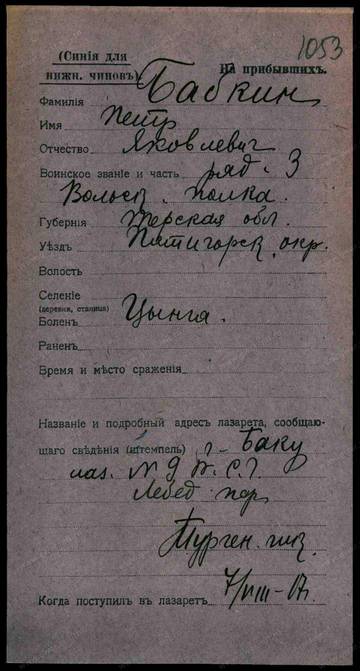 1053
(Синія для
нижн. чиновъ)
На прибывшихъ.
Фамилія Бабкин
Имя Петр
Отчество Яковлевич
Воинское званіе и часть ряд. 3
Вольск. полка.
Губернія Терская обл.
Уѣздъ Пятигорск. окр.
Волость
Селеніе
(деревня, станица)
Боленъ Цынга.
Раненъ
Время и мѣсто сраженія
Названіе и подробный адресъ лазарета, сообщаю-
щаго свѣдѣнія (штемпель) г. Баку
лаз. N 9 В. С. Г.
Лебед. пер
Турген.
7/VIII-17г.
Когда поступилъ въ лазаретъ